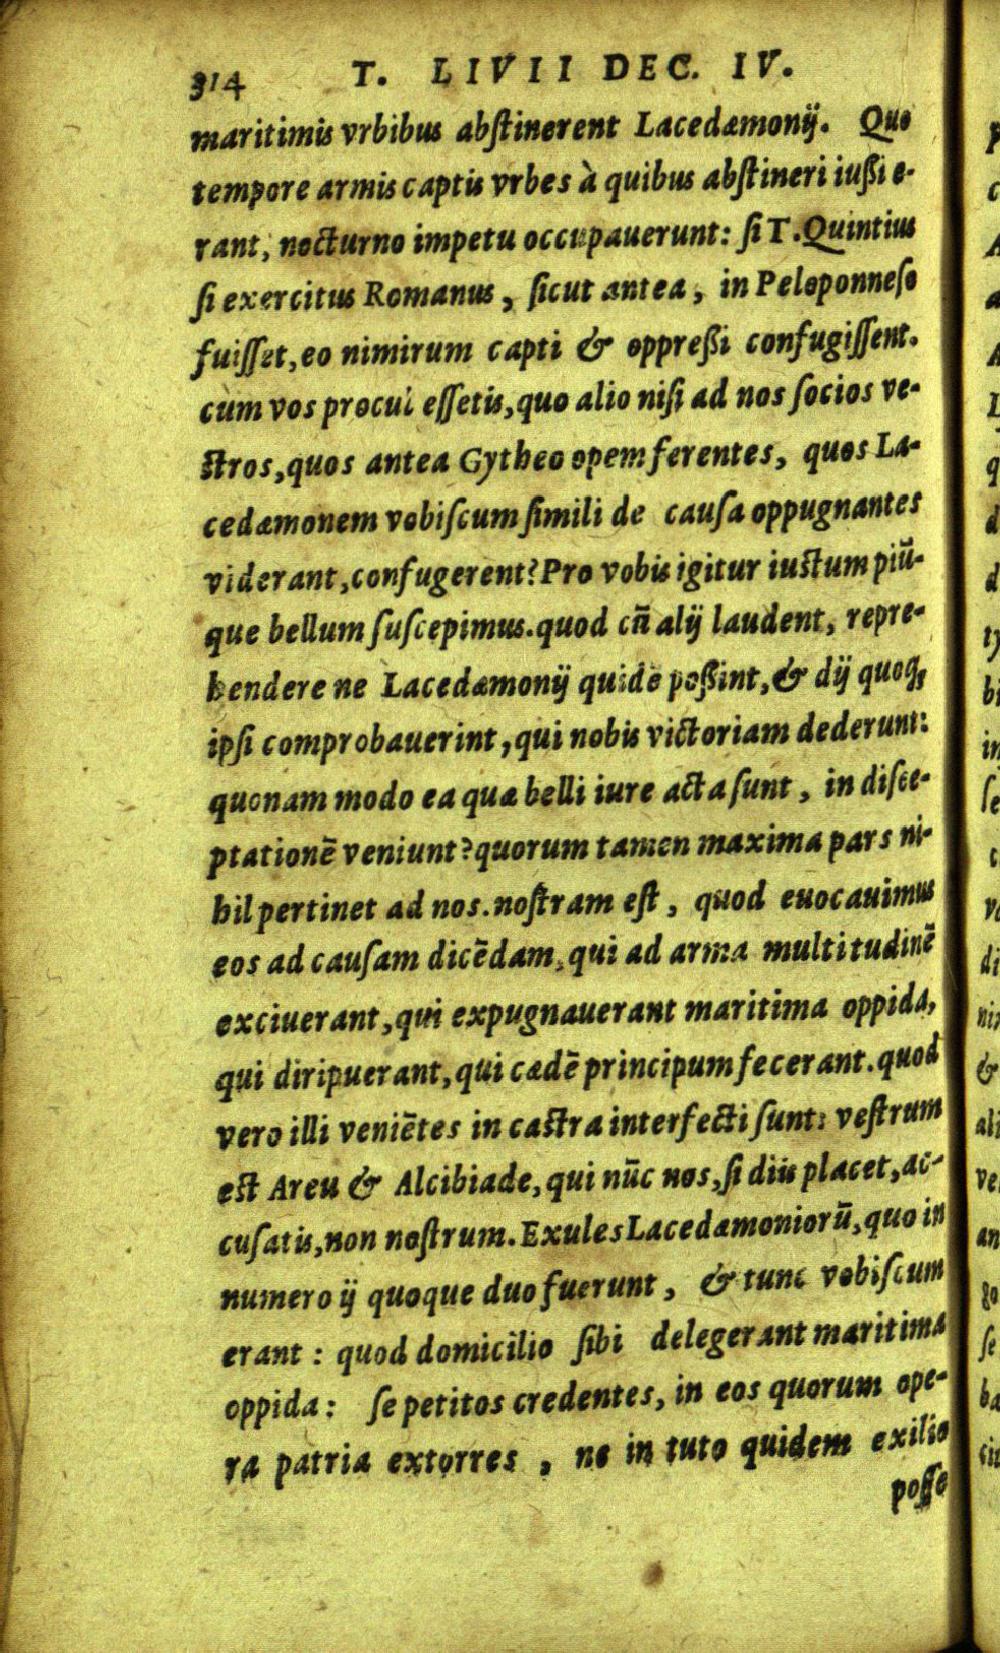 314 T. LIVII DEC. IV.
maritimis vrbibus abſtinerent Lacedæmonij. Quo
tempore armis captis vrbes à quibus abſtineri iußi e-
rant, nocturno impetu occupauerunt: ſi T. Quintius
ſi exercitus Romanus, ſicut antea, in Peloponneſo
fuiſſet, eo nimirum capti & oppreßi confugiſſent.
cùm vos procul eſſetis, quo alio niſi ad nos ſocios ve-
ſtros, quos antea Gytheo opem ferentes, quos La-
cedæmonem vobiſcum ſimili de cauſa oppugnantes
viderant, confugerent? Pro vobis igitur iuſtum piū-
que bellum ſuſcepimus. quod cū alij laudent, repre-
hendere ne Lacedæmonij quidē poßint, & dij quoq;
ipſi comprobauerint, qui nobis victoriam dederunt:
quonam modo ea quæ belli iure acta ſunt, in diſce-
ptationē veniunt? quorum tamen maxima pars ni-
hil pertinet ad nos. noſtram eſt, quod euocauimus
eos ad cauſam dicēdam, qui ad arma multitudinē
exciuerant, qui expugnauerant maritima oppida,
qui diripuerant, qui cædē principum fecerant. quod
vero illi veniētes in caſtra interfecti ſunt: veſtrum
eſt Areu & Alcibiade, qui nūc nos, ſi diis placet, ac-
cuſatis, non noſtrum. Exules Lacedæmoniorū, quo in
numero ij quoque duo fuerunt, & tunc vobiſcum
erant: quod domicilio ſibi delegerant maritima
oppida: ſe petitos credentes, in eos quorum ope-
ra patria extorres, ne in tuto quidem exilio
poſſe